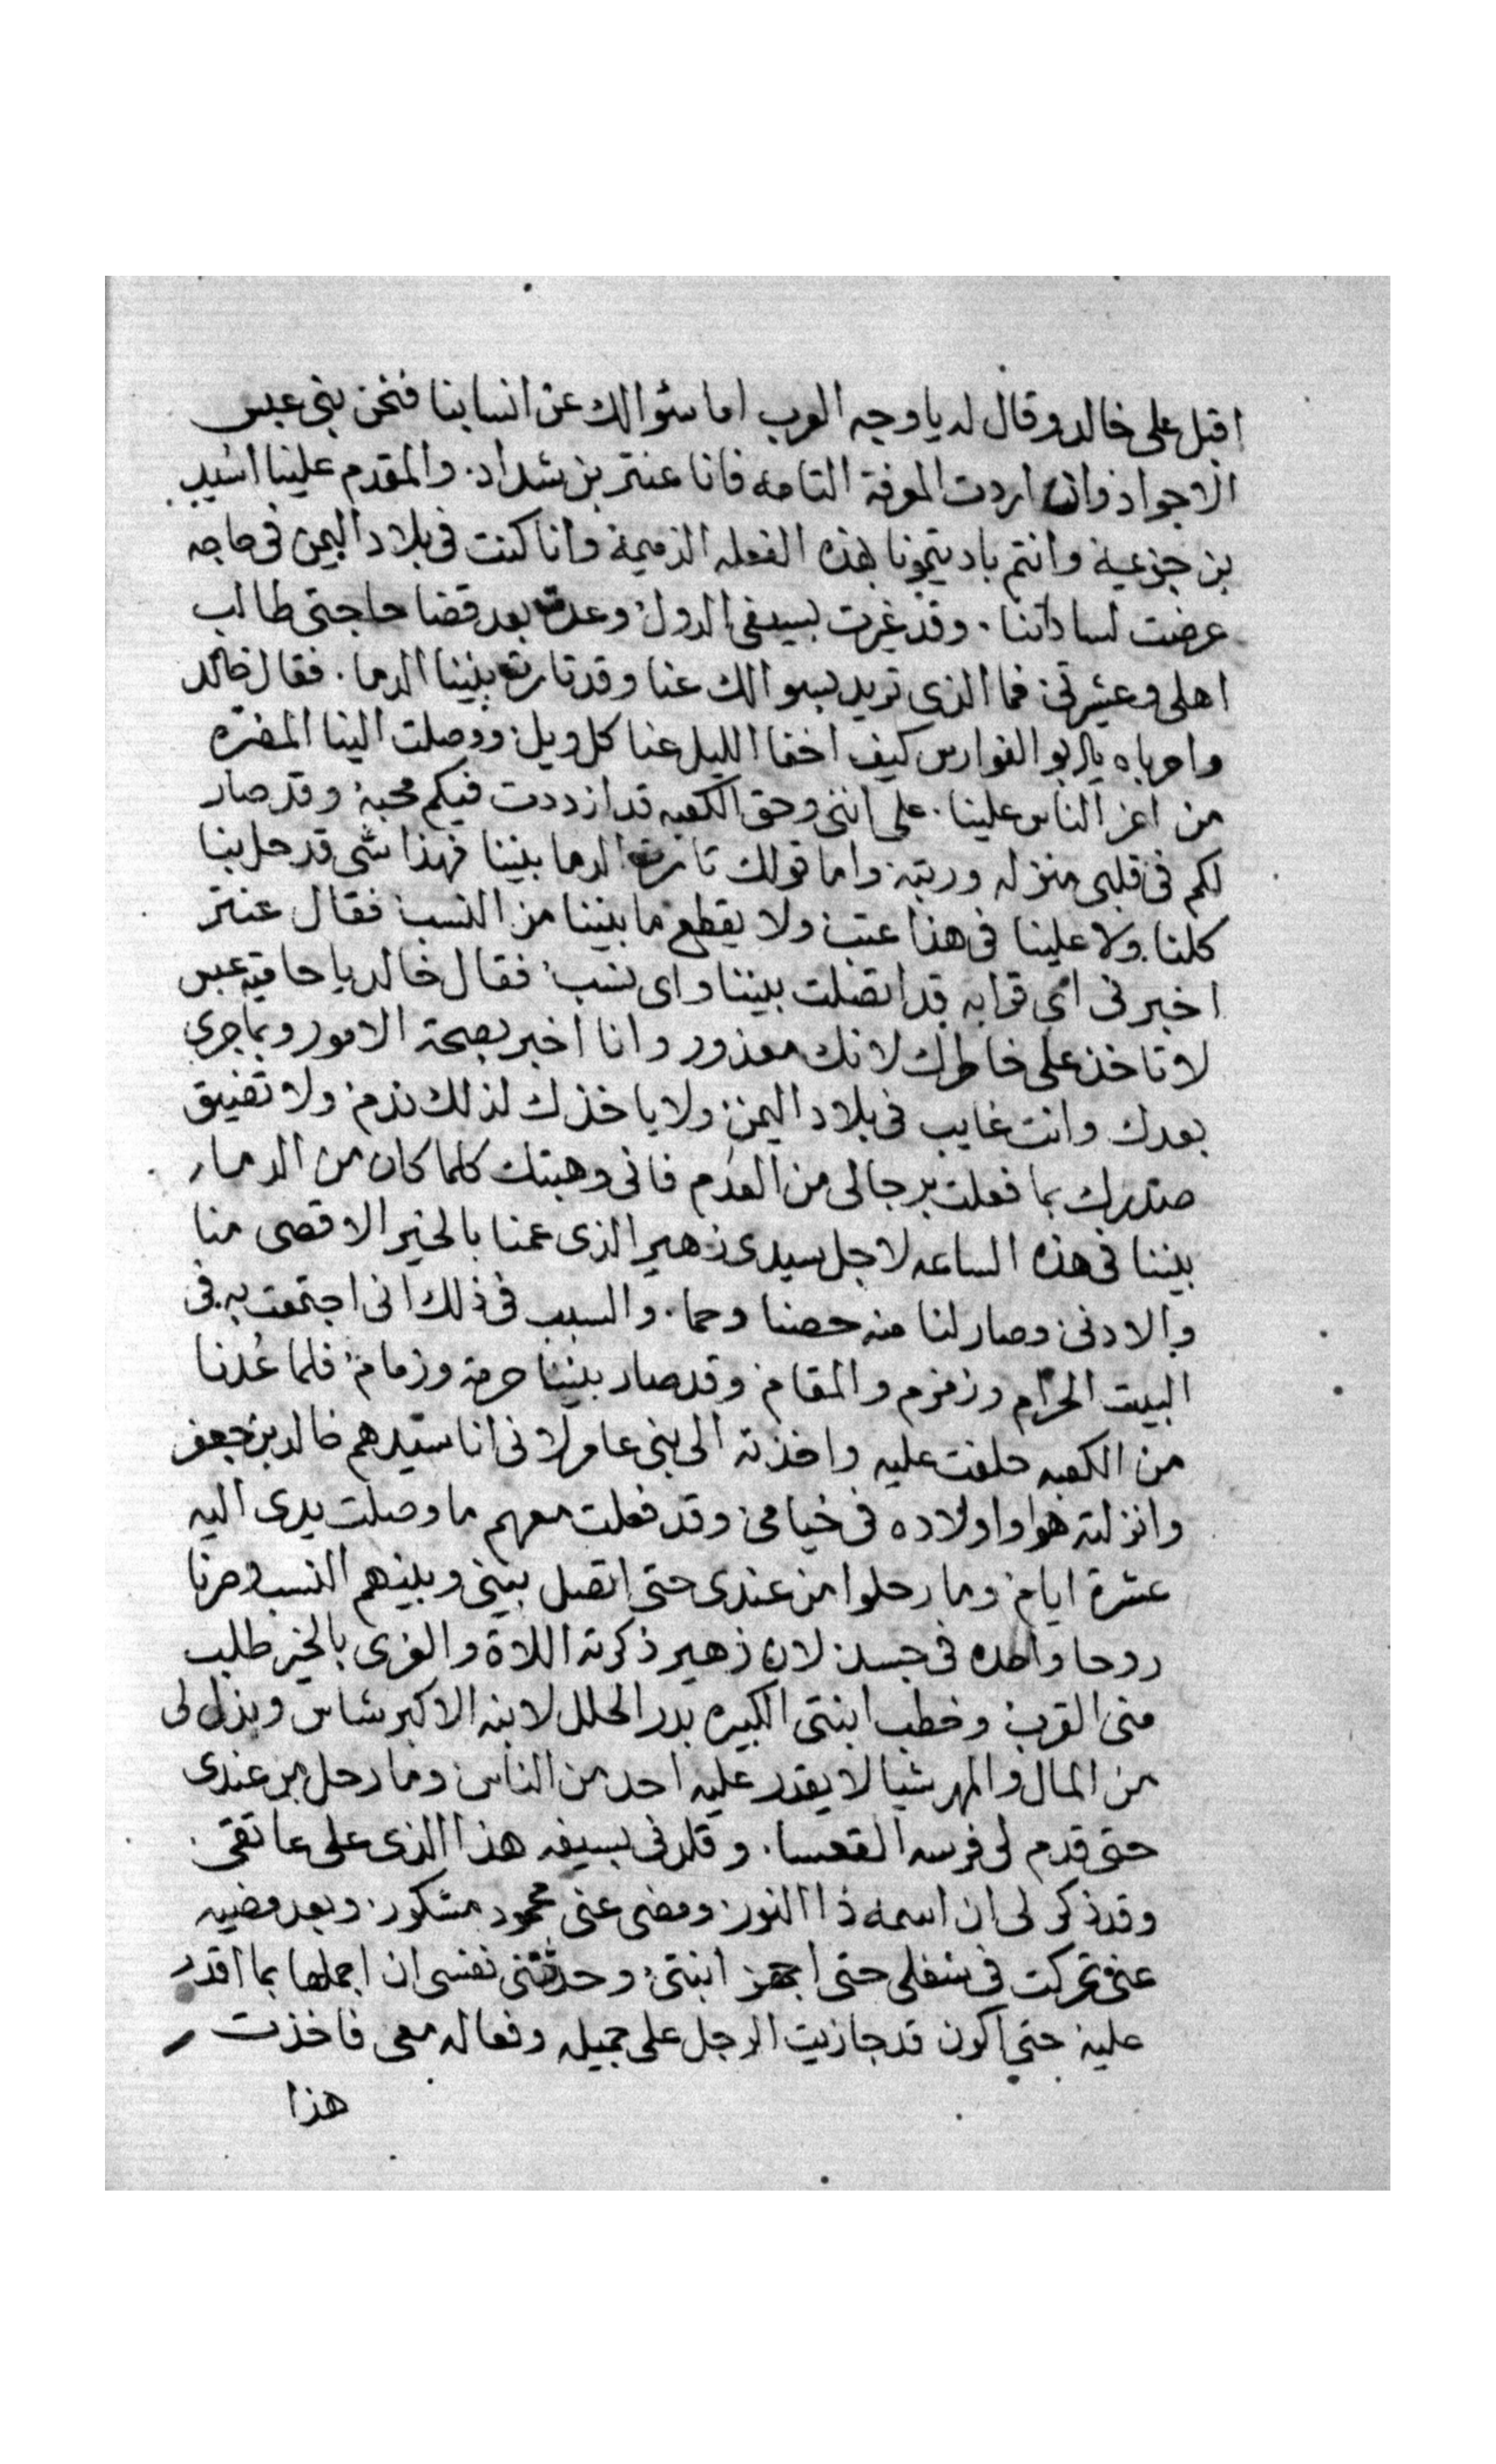 اقبل على خالد وقال له يا وجه العرب اما سئوالك عن انسابنا فنحن بني عبس
الاجواد وان اردت المعرفة التامه فانا عنتر بن شداد. والمقدم علينا اسيد
بن جزعية وانتم باديتمونا بهذه الفعله الذميمة وانا كنت في بلاد اليمن في حاجه
عرضت لساداتنا. وقد غرت بسيفي الدول وعدت بعد قضا حاجتي طالب
اهلى وعشيرتي فما الذى تريد بسوالك عنا وقد تارت بيننا الدما. فقال خالد
واحرباه يابو الفوارس كيف اخفا الليل عنا كل ويل ووصلت الينا المضره
من اعز الناس علينا. على انني وحق الكعبه قد ازددت فيكم محبة وقد صار
لكم في قلبى منزله ورتبة واما قولك تارت الدما بيننا فهذا شى قد حل بنا
كلنا ولا علينا في هذا عتب ولا يقطع ما بيننا من النسب فقال عنتر
اخبرنى اى قرابه قد اتصلت بيننا واى نسب فقال خالد يا حامية عبس
لا تاخذ على خاطرك لانك معذور وانا اخبر بصحة الامور وبماجرى
بعدك وانت غايب في بلاد اليمن ولا ياخذك لذلك ندم ولا تضيق
صدرك بما فعلت برجالى من العدم فانى وهبتك كلما كان من الدما
بيننا في هذه الساعه لاجل سيدى زهير الذى عمنا بالخير الاقصى منا
والادنى وصار لنا منه حصنا وحما. والسبب في ذلك انى اجتمعت به في
البيت الحرام وزمزم والمقام وقد صار بيننا حرمة وزمام فلما عُدنا
من الكعبه حلفت عليه واخذته الى بني عامر لانى انا سيدهم خالد بن جعفر
وانزلته هوا واولاده في خيامى وقد فعلت معهم ما وصلت يدى اليه
عشرة ايام وما رحلوا من عندى حتى اتصل بيني وبينهم النسب وصرنا
روحا واحده في جسد لان زهير ذكرته اللاة والعزى بالخير طلب
منى القرب وخطب ابنتى الكبيره بدر الحلل لابنه الاكبر شاس وبذل لى
من المال والمهر شيا لا يقدر عليه احد من الناس وما رحل من عندى
حتى قدم لى فرسه القعسا. وقلدنى بسيفه هذا الذى على عاتقى
وقد ذكر لى ان اسمه ذا النور ومضى عنى محمود مشكور وبعد مضيه
عنى تحركت في شغلى حتى اجهز ابنتى وحدثتنى نفسى ان اجملها بما اقدر
عليه حتي اكون قد جازيت الرجل على جميله وفعاله معى فاخذت
هذا